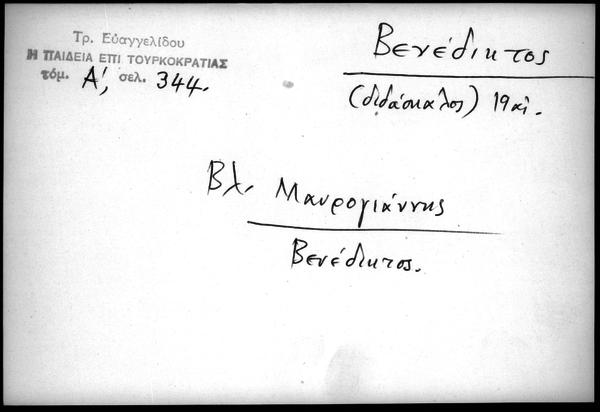 Τρ. Εὐαγγελίδου
Η ΠΑΙΔΕΙΑ ΕΠΙ ΤΟΥΡΚΟΚΡΑΤΙΑΣ
τόμ. Α', σελ. 344.
Βενέδικτος
(διδάσκαλος) 19 αἰ.
Βλ. Μαυρογιάννης
Βενέδικτος.